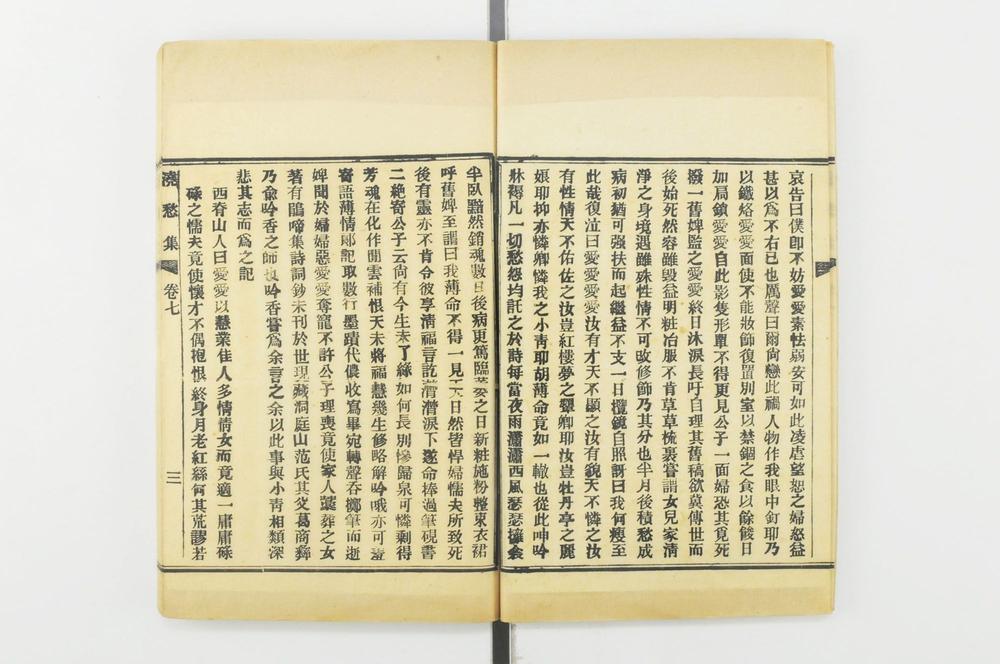 哀告曰僕卽不妨愛愛素怯弱安可如此凌虐望恕之婦怒益
甚以爲不右已也厲聲曰爾尙戀此禍人物作我眼中釘耶乃
以鐵烙愛愛面使不能妝飾復置別室以禁錮之食以餘餕日
加扃鎖愛愛自此影隻形單不得更見公子一面婦恐其覓死
撥一舊婢監之愛愛終日沐淚長吁自理其舊稿欲冀傳世而
後始死然容雖毀益明粧冶服不肯草草梳裹嘗謂女兒家清
淨之身境遇雖殊性情不可改修飾乃其分也半月後積愁成
病初猶可强扶而起繼益不支一日攬鏡自照訝曰我何瘦至
此哉復泣曰愛愛愛愛汝有才天不顯之汝有貌天不憐之汝
有性情天不佑佐之汝豈紅樓夢之顰卿耶汝豈牡丹亭之麗
娘耶抑亦憐卿憐我之小靑耶胡薄命竟如一轍也從此呻吟
牀褥凡一切愁怨均託之於詩每當夜雨瀟瀟西風瑟瑟擁衾
半臥黯然銷魂數日後病更篤臨薨之日新粧施粉整束衣裙
呼舊婢至謂曰我薄命不得一見天日然皆悍婦懦夫所致死
後有靈亦不肯令彼享清福言訖濳濳淚下遂命捧過筆硯書
二絶寄公子云尙有今生未了緣如何長別慘歸泉可憐剩得
芳魂在化作閒雲補恨天未將福慧幾生修略解吟哦亦可羞
寄語薄情郞記取數行墨蹟代儂收寫畢宛轉聲吞擲筆而逝
婢聞於婦婦惡愛愛奪寵不許公子理喪竟使家人藁葬之女
著有鵑啼集詩詞鈔未刋於世現藏洞庭山范氏其友葛商彝
乃兪吟香之師也吟香嘗爲余言之余以此事與小靑相類深
悲其志而爲之記
西脊山人曰愛愛以慧業佳人多情情女而竟適一庸庸碌
碌之懦夫竟使懷才不偶抱恨終身月老紅絲何其荒謬若
澆愁集
卷七
三